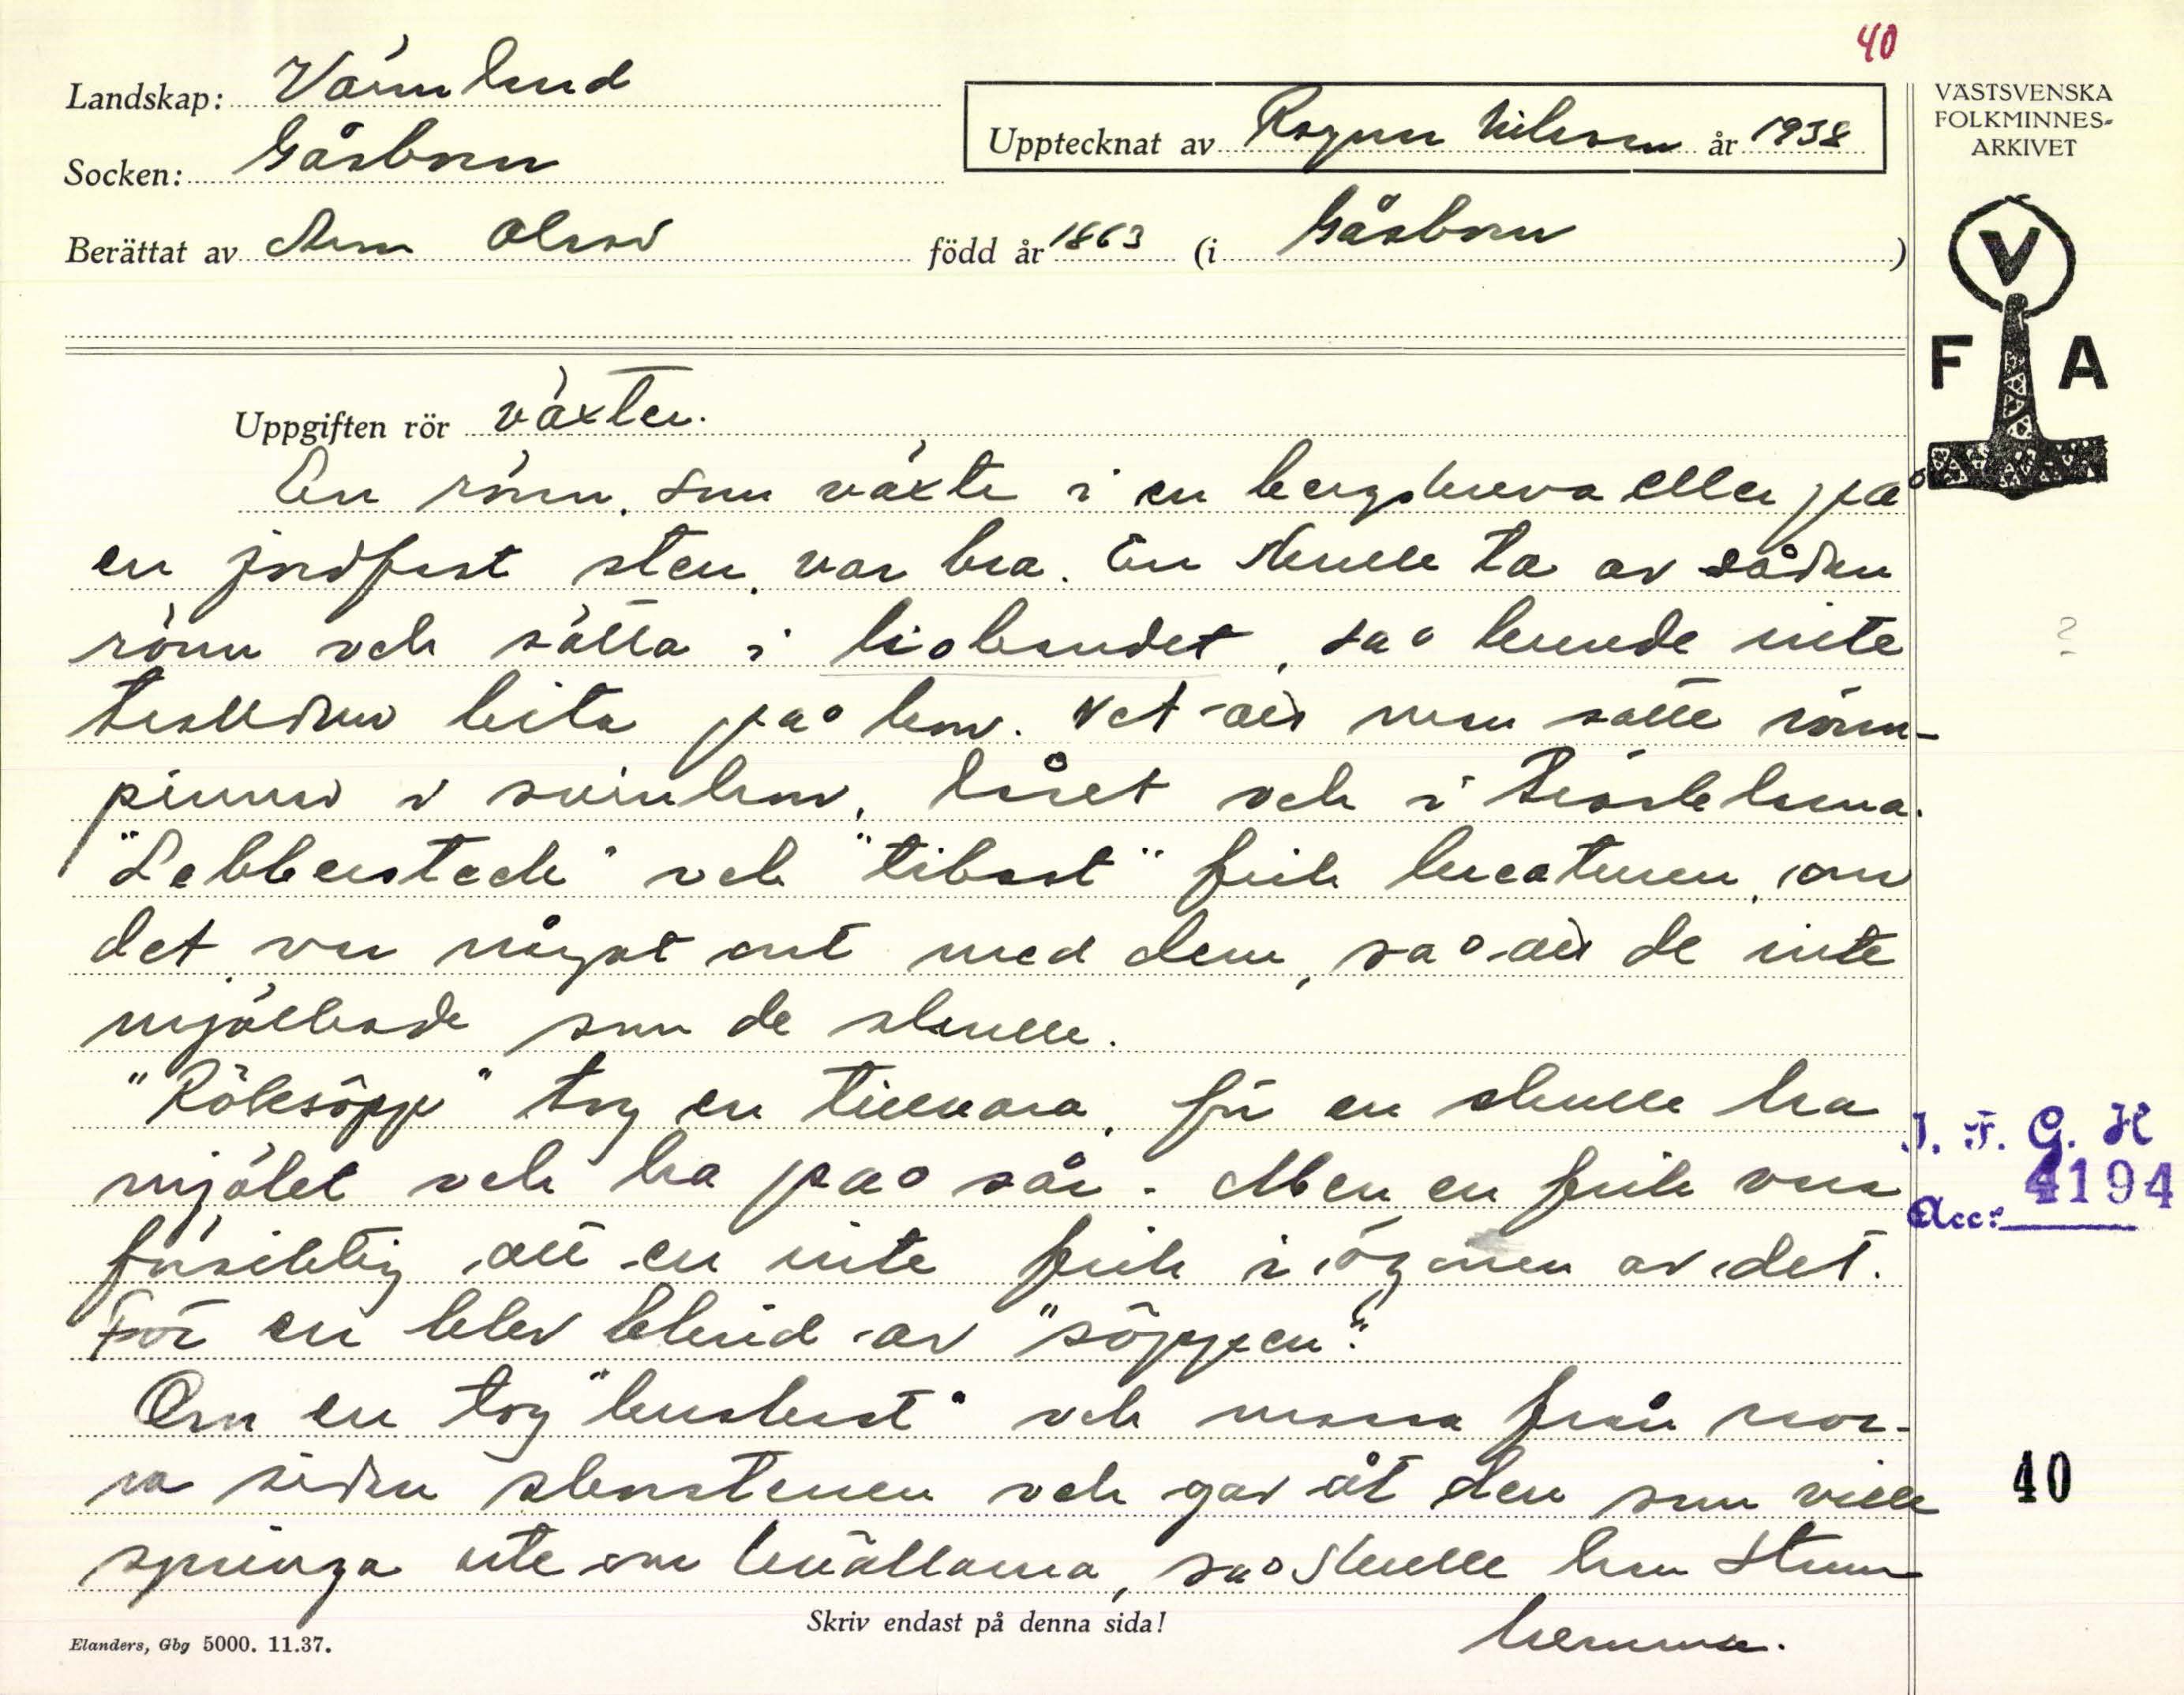 40
Landskap: Värmland
Socken: Gåsborn
Upptecknat av Ragnar Nilsson år 1938
Berättat av Anna Olsson född år 1863 (i Gåsborn)
VÄSTSVENSKA
FOLKMINNES-
ARKIVET
V
F A
Uppgiften rör växter.
En rönn, som växte i en bergskreva eller på
en jordfast sten, var bra. En skulle ta av sådan
rönn och sätta i liobandet, så kunde inte
trolldom bita på den. Vet att man satte rönn-
pinnar i svinhuset och i tröskeln.
?
"Lebberstech" och "tibast" fick kreaturen, om
det var något ont med dem, så att de inte
mjölkade som de skulle.
"Röksöpp" tog en tillvara, för en skulle ha
mjölet och ha på sår. Men en fick vara
försiktig att en inte fick i ögonen av det.
För en blev blind av "söppen".
I. F. G. H
Acc: 4194
Om en tog "kuskust" och mossa från nor-
ra sidan skorstenen och gav åt den som ville
springa ute om kvällarna, så skulle han stanna
hemma.
40
Skriv endast på denna sida!
Elanders, Gbg 5000. 11.37.